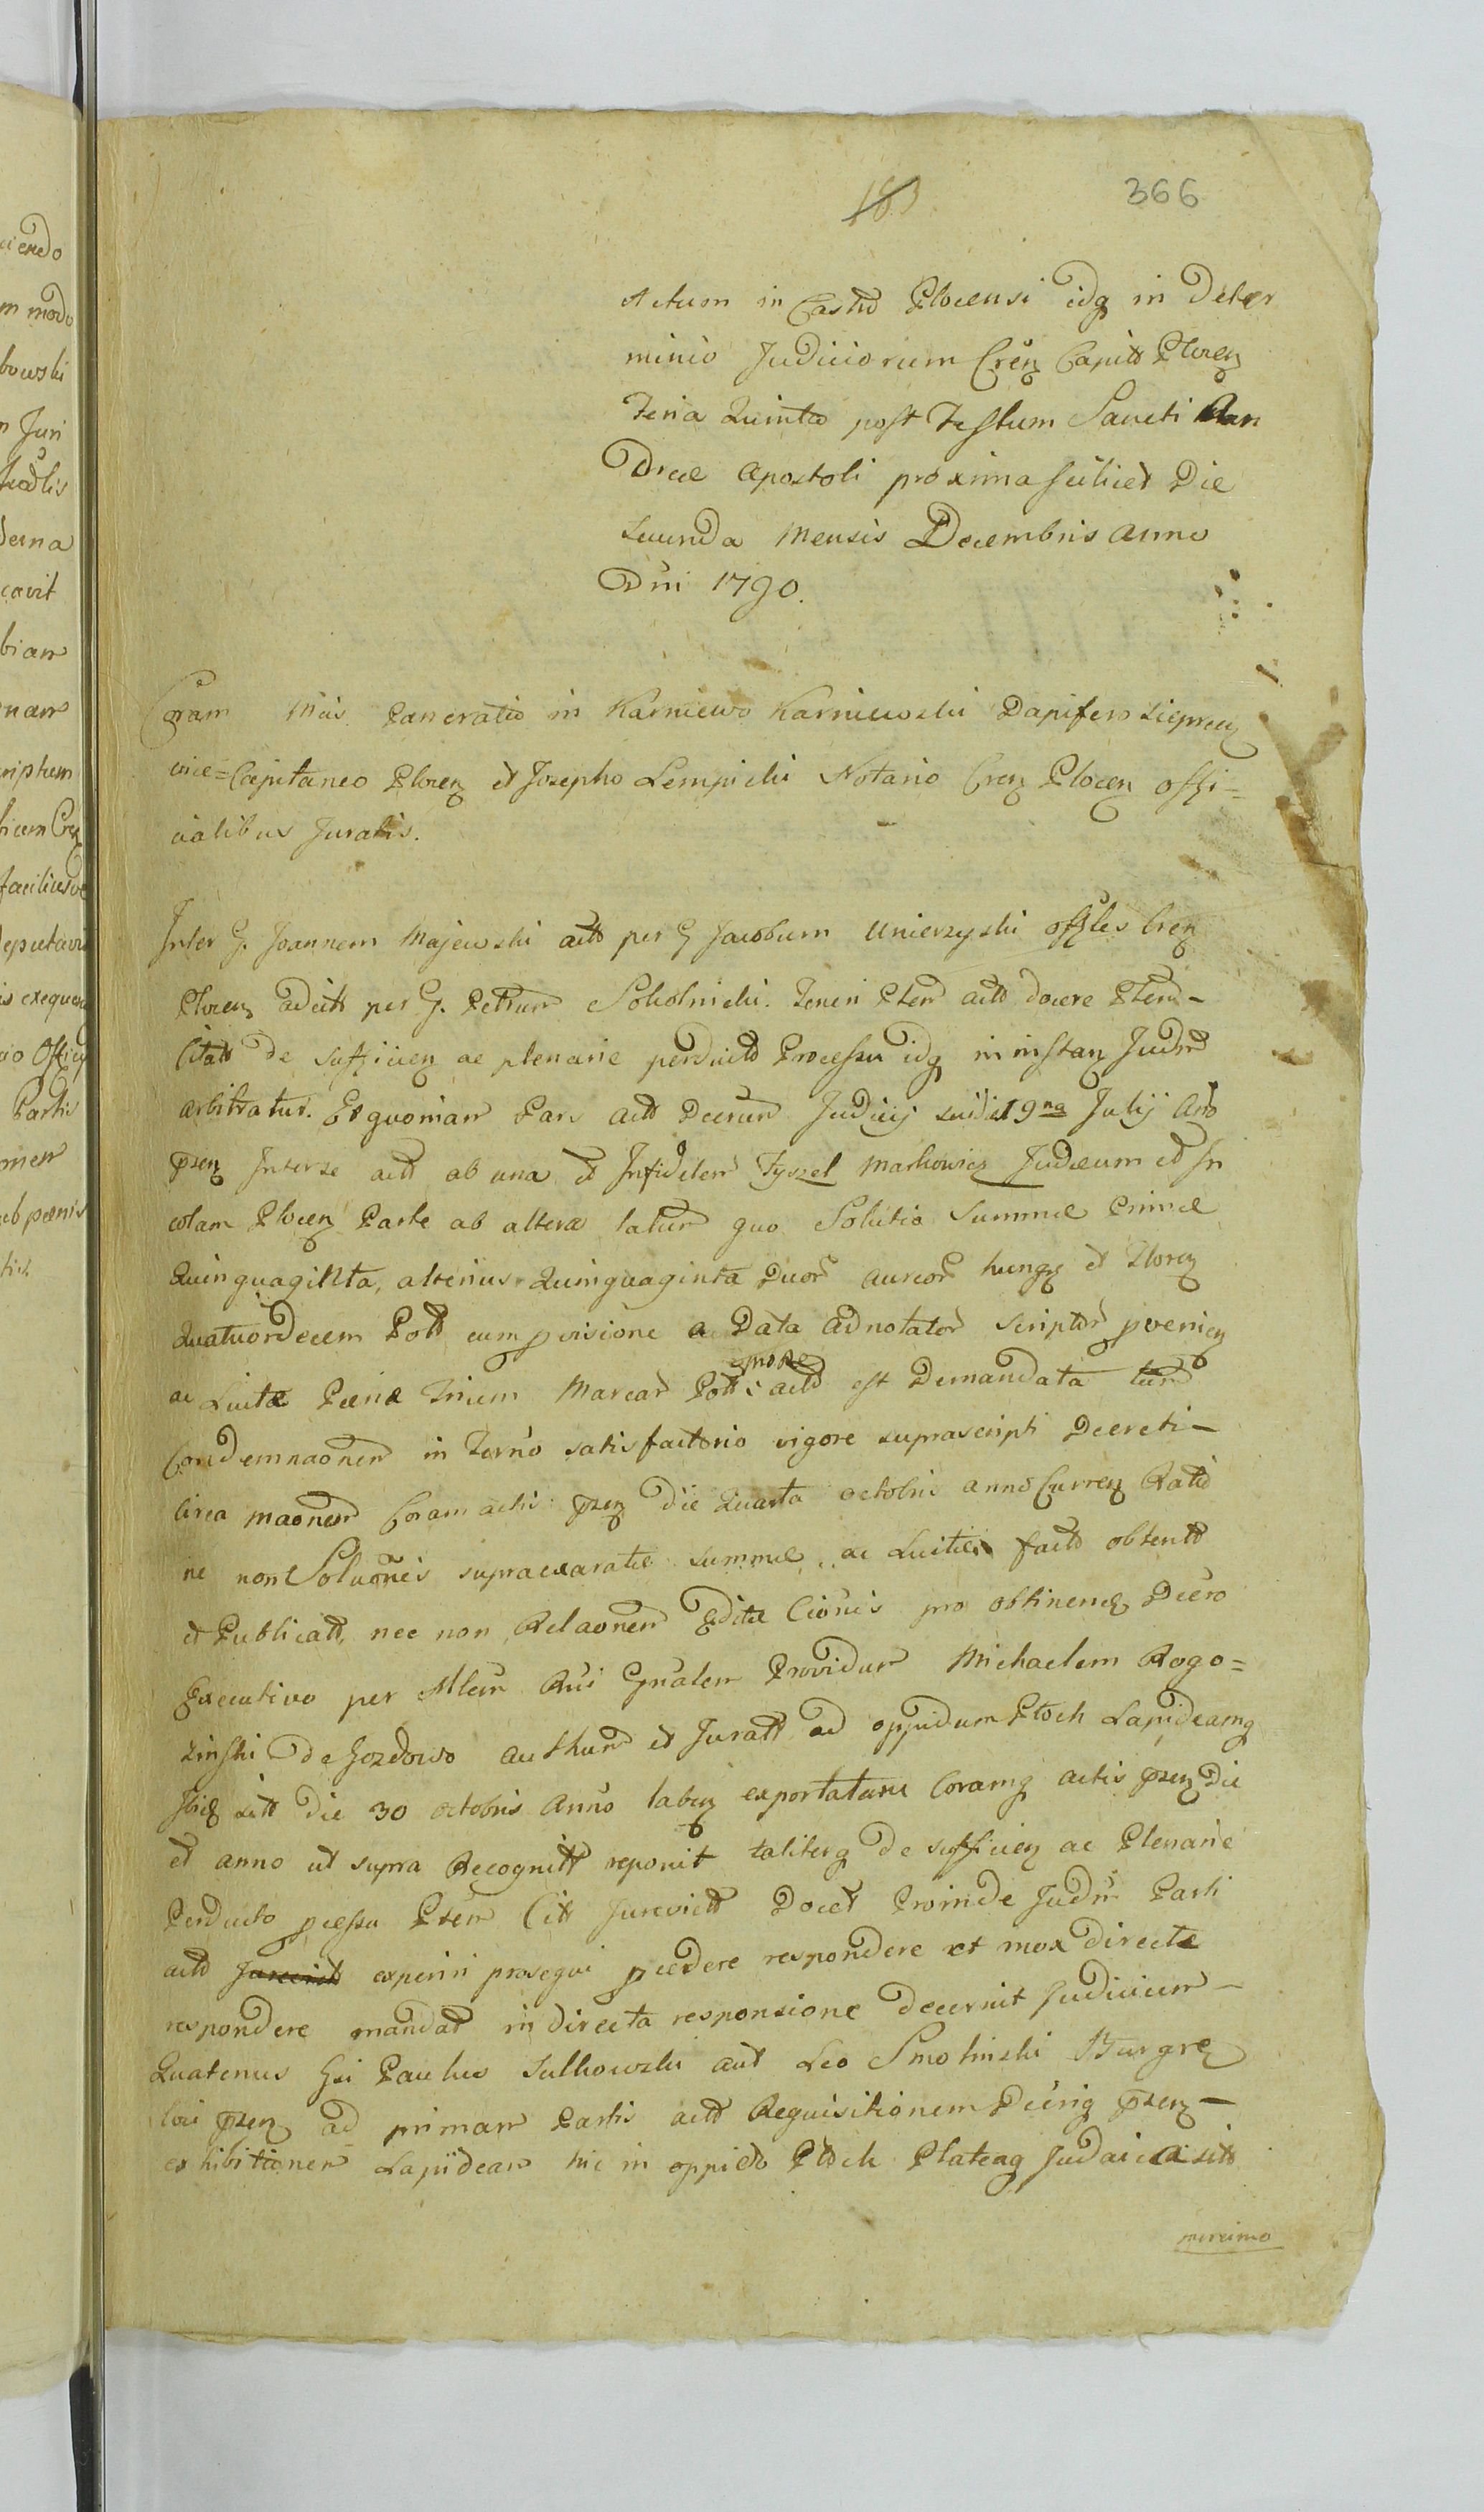 183 366
Actum in Castro Plocensi idq in Deter
minio Judiciorum Cren Capitt Plocen
Feria Quinta post Festum Sancti An
Dreae Apostoli proxima scilicet Die
Secunda Mensis Decembris Anno
Dni 1790.
Coram Mcis Pancratio in Karniewo Karniewski Dapifero Sieprcen
vice=Capitaneo Plocen et Josepho Lempicki Notario Cren Plocen offi=
cialibus Juratis.
Inter G. Joannem Majewski actt per G Jacobum Unierzyski offles Cren
Plocen adcitt per G. Petrum Sokolnicki. Teneri Ptem actt docere Ptem
Citatt de sufficien ac plenarie perducto Processu idq in instan Judm
arbitratur. Et quoniam Pars actt Decrum Judicij sui die 19na Julij Ano
psen Inter se actt ab una et Infidelem Fyszel Markowicz Judaeum et In
colam Plocen Parte ab altera latum quo Solutio Summae Primae
Quinquaginta, alterius Quinquaginta Duor aureor hungr et Floren
Quatuordecem Poll cum pvisione a Data adnotator Scriptor pvenien
ac Luita Paenae Trium Marcar Poll actt est Demandata tum
Condemnaonem in Terno satisfactorio vigore suprascripti Decreti
circa maonem Coram actis psen die Quarta octobris anno Curren Ratio
ne non Soluonis supraexaratae summae ac Luitae facto obtentt
et Publicatt, nec non Relaonem Edita Cionis pro obtinend Decro
Executivo per Mlem Rni Gnalem Providum Michaelem Rogo=
zinski de Gozdowo authum et Juratt ad oppidum Plock Lapideamq
Ibid sitt die 30 octobris Anno laben exportatam Coramq actis psen die
et anno ut supra Recognitt reponit taliterq de sufficien ac Plenarie
Perducto pcessu Ptem Citt Jurevictt Docet Proinde Judm Parti
actt Jurevictt experiri prosequi pcedere respondere et mox directe
respondere mandat in directa responsione decernit Judicium
Quatenus Gsi Paulus Sulkowski aut Leo Smolinski Burgr
loci psen ad primam Partis actt Requisitionem Decriq psen
exhibitionem Lapideam hic in oppido Plock Plateaq Judaica sitt